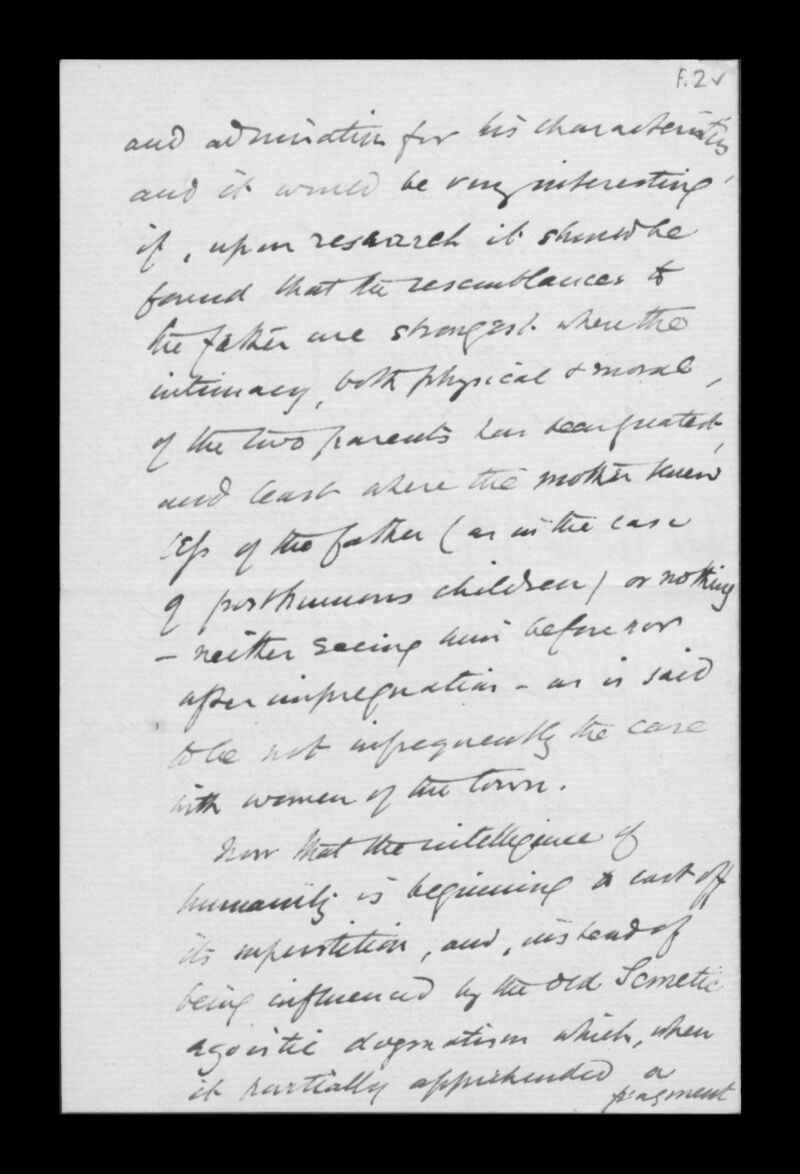 F.2v
and admiration for his characteristics,
and it would be very interesting
if, upon research it should be
found that the resemblances to
the father are strongest where the
intimacy, both physical & moral,
of the two parents has been greatest,
and least where the mother knew
less of the father (as in the case
of posthumous children) or nothing
- neither seeing him before nor
after impregnation - as is said
to be not infrequently the case
with women of the town.
Now that the intelligence of
humanity is beginning to cast off
its superstition, and, instead of
being influenced by the old Semetic
egoistic dogmatism which, when
it partially apprehended a
fragment